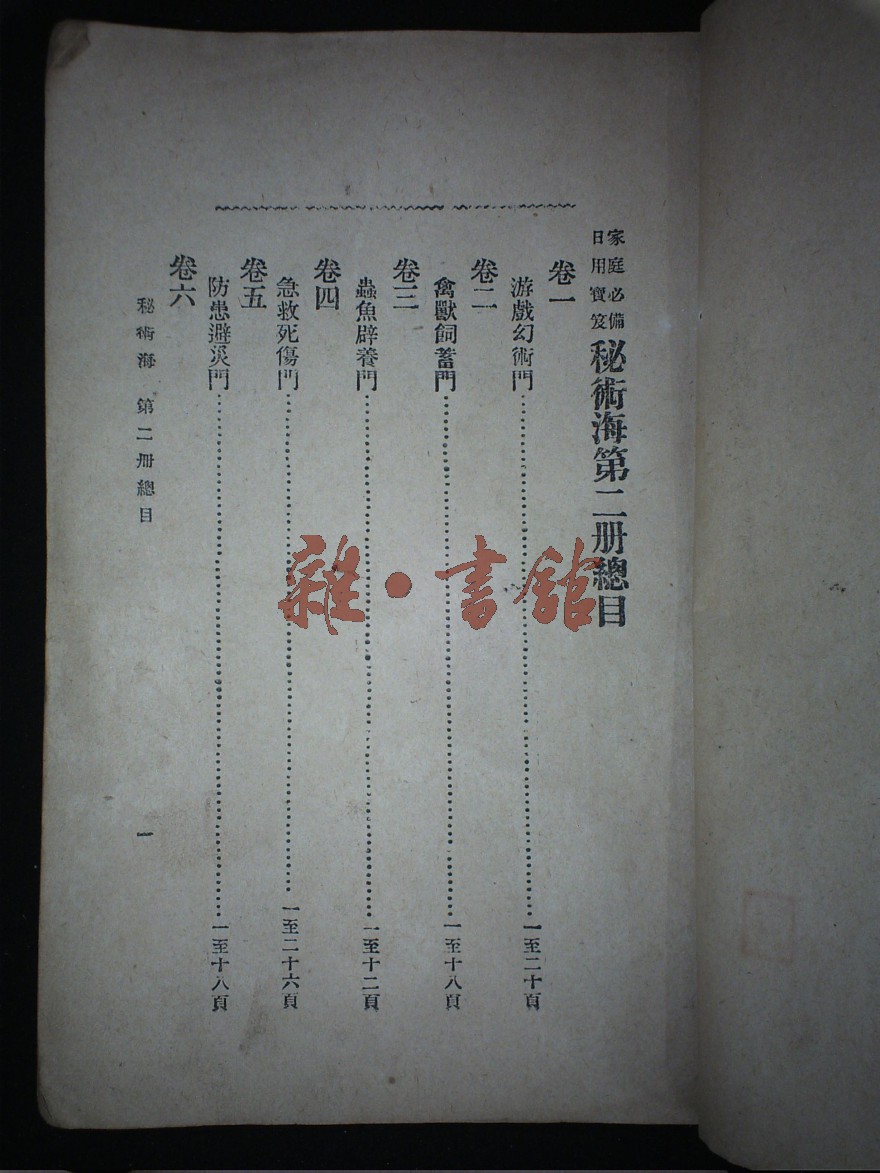 家庭必備
日用寶笈
秘術海第二册總目
卷一
游戲幻術門…一至二十頁
卷二
禽獸飼蓄門…一至十八頁
卷三
蟲魚辟養門…一至十二頁
卷四
急救死傷門…一至二十六頁
卷五
防患避災門…一至十八頁
卷六
秘術海 第二册總目 一
雜·書舘